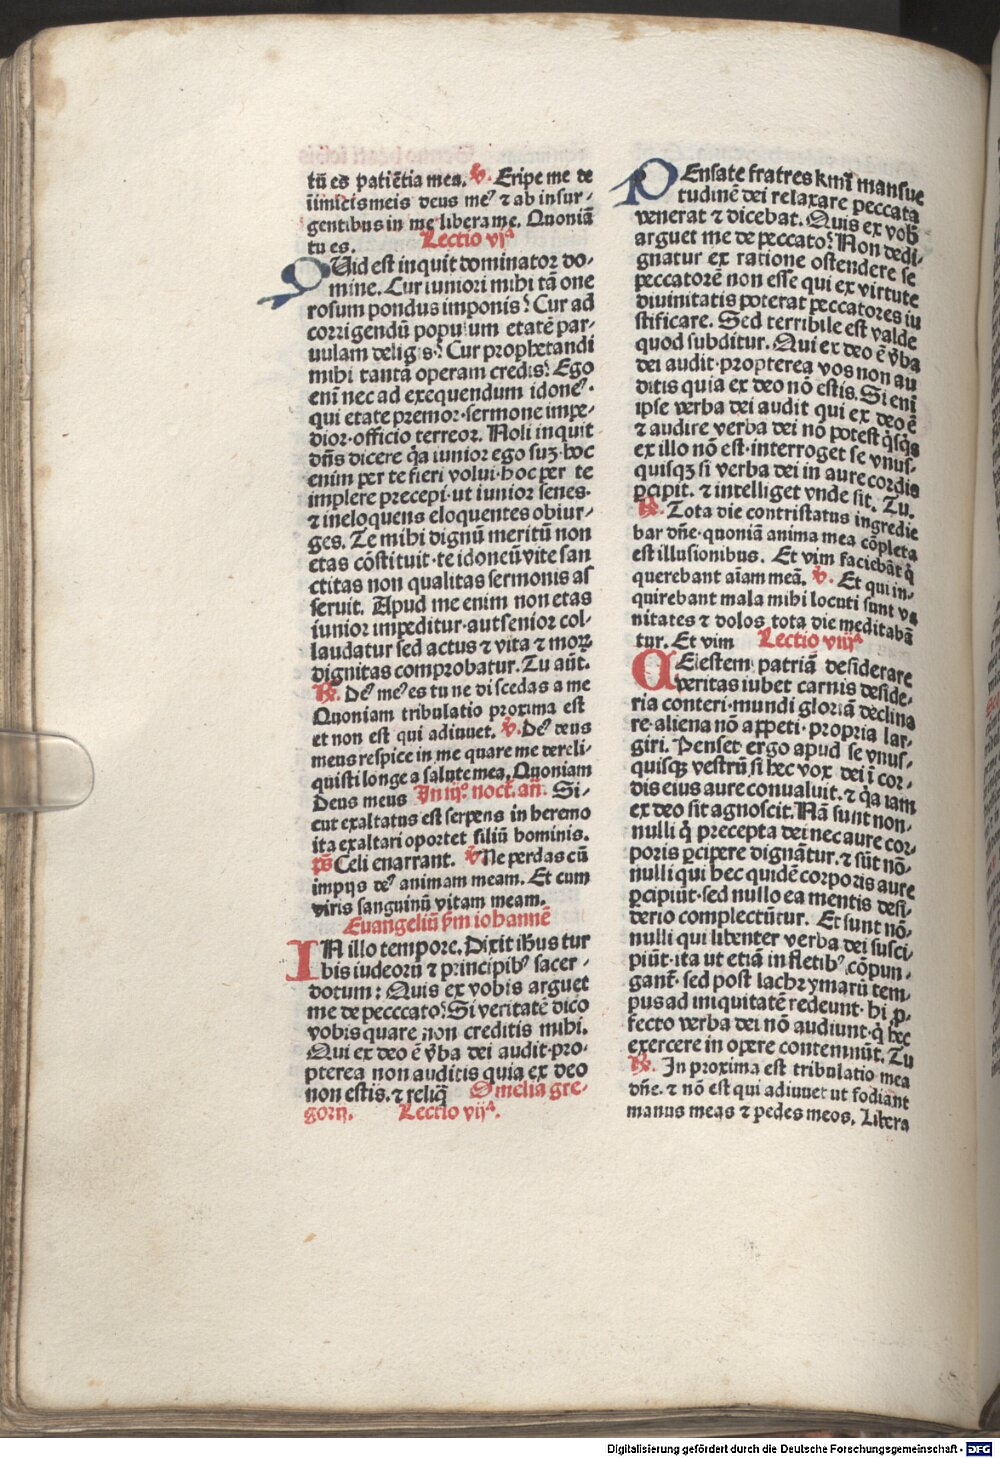 tū es patiētia mea. ℣. Eripe me de
inimicis meis deus meꝰ ⁊ ab insur-
gentibus in me libera me. Quoniā
tu es. Lectio vjᵃ
QUid est inquit dominator do-
mine. Cur iuniori mihi tā one
rosum pondus imponis? Cur ad
corrigendū populum etatē par-
uulam deligis? Cur prophetandi
mihi tantā operam credis? Ego
eni nec ad exequendum idoneꝰ.
qui etate premor·sermone impe-
dior·officio terreor. Noli inquit
dn̄s dicere q̄a iunior ego suꝫ·hoc
enim per te fieri volui·hoc per te
implere precepi·ut iunior senes·
⁊ ineloquens eloquentes obiur-
ges. Te mihi dignū meritū non
etas cōstituit·te idoneū vite san
ctitas non qualitas sermonis as
seruit. Apud me enim non etas
iunior impeditur·aut senior col-
laudatur sed actus ⁊ vita ⁊ moꝝ
dignitas comprobatur. Tu aūt.
℟. Deꝰ meꝰ es tu ne discedas a me
Quoniam tribulatio proxima est
et non est qui adiuuet. ℣. Deꝰ deus
meus respice in me quare me dereli-
quisti longe a salute mea. Quoniam
Deus meus In iijᵒ noct̄. añ. Si-
cut exaltatus est serpens in heremo
ita exaltari oportet filiū hominis.
p̄s Celi enarrant. ℣ Ne perdas cū
impijs deꝰ animam meam. Et cum
viris sanguinū vitam meam.
Euangeliū ẜm iohannē
IN illo tempore. Dixit ihus tur
bis iudeorū ⁊ principibꝰ sacer-
dotum: Quis ex vobis arguet
me de pecccato? Si veritatē dico
vobis quare non creditis mihi.
Qui ex deo ē v̄ba dei audit·pro-
pterea non auditis quia ex deo
non estis. ⁊ reliq̄ Omelia gre-
gorij. Lectio vijᵃ.
PEnsate fratres kmi mansue
tudinē dei relaxare peccata
venerat ⁊ dicebat. Quis ex vob̄
arguet me de peccato? Non dedi-
gnatur ex ratione ostendere se
peccatorē non esse qui ex virtute
diuinitatis poterat peccatores iu
stificare. Sed terribile est valde
quod subditur. Qui ex deo ē v̄ba
dei audit·propterea vos non au
ditis quia ex deo nō estis. Si eni
ipse verba dei audit qui ex deo ē
⁊ audire verba dei nō potest q̄sq̄s
ex illo nō est·interroget se vnus-
quisqꝫ si verba dei in aure cordis
ꝑcipit. ⁊ intelliget vnde sit. Tu.
℟. Tota die contristatus ingredie
bar dñe·quoniā anima mea cōpleta
est illusionibus. Et vim faciebāt q̄
querebant aīam meā. ℣. Et qui in-
quirebant mala mihi locuti sunt va
nitates ⁊ dolos tota die meditabā
tur. Et vim Lectio viijᵃ
CElestem patriā desiderare
veritas iubet carnis deside-
ria conteri·mundi gloriā declina
re·aliena nō appeti·propria lar-
giri. Penset ergo apud se vnus-
quisqꝫ vestrū si hec vox dei ī cor-
dis eius aure conualuit. ⁊ q̄a iam
ex deo sit agnoscit. Nā sunt non-
nulli q̄ precepta dei nec aure cor-
poris ꝑcipere dignātur. ⁊ sūt nō-
nulli qui hec quidē corporis aure
ꝑcipiūt·sed nullo ea mentis desi-
derio complectūtur. Et sunt nō-
nulli qui libenter verba dei susci-
piūt·ita ut etiā in fletibꝰ cōpun-
gant̄·sed post lachrymarū tem-
pus ad iniquitatē redeunt·hi ꝓ-
fecto verba dei nō audiunt·q̄ hec
exercere in opere contemnūt. Tu
℟. In proxima est tribulatio mea
dñe. ⁊ nō est qui adiuuet ut fodiant
manus meas ⁊ pedes meos. Libera
Digitalisierung gefördert durch die Deutsche Forschungsgemeinschaft - DFG